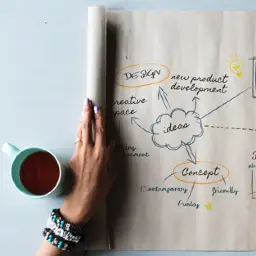 DESIGN
new product
development
creative
space
ideas
Concept
Contemporary
friendly